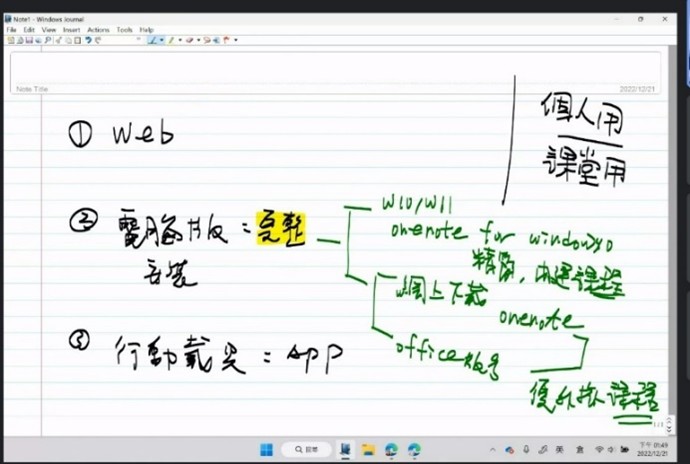 Note1 - Windows Journal
File Edit View Insert Actions Tools Help
Note Title
2022/12/21
個人用
課堂用
① Web
② 電腦版：完整
安裝
W10/W11
onenote for windows10
精簡，內建課程
網上下載
onenote
office帳號
③ 行動載具：APP
課程
1/1
搜尋
英
下午 01:49
2022/12/21